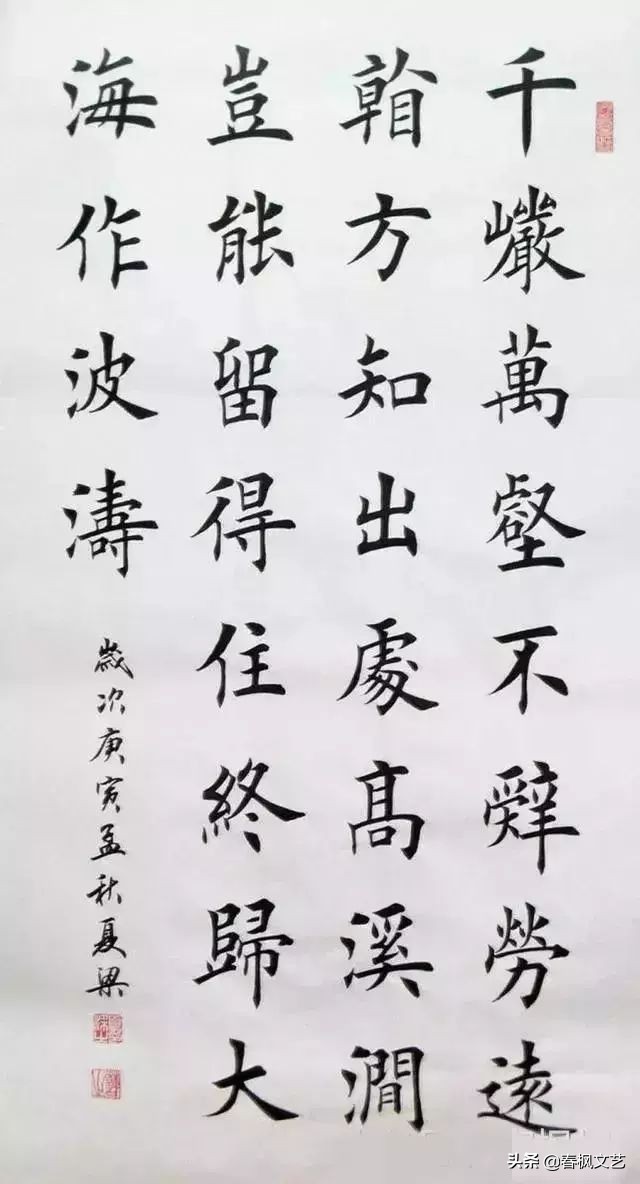 千巗萬壑不辭勞遠
看方知出處高溪澗
豈能留得住終歸大
海作波濤
歲次庚寅孟秋夏梁
头条 @春枫文艺